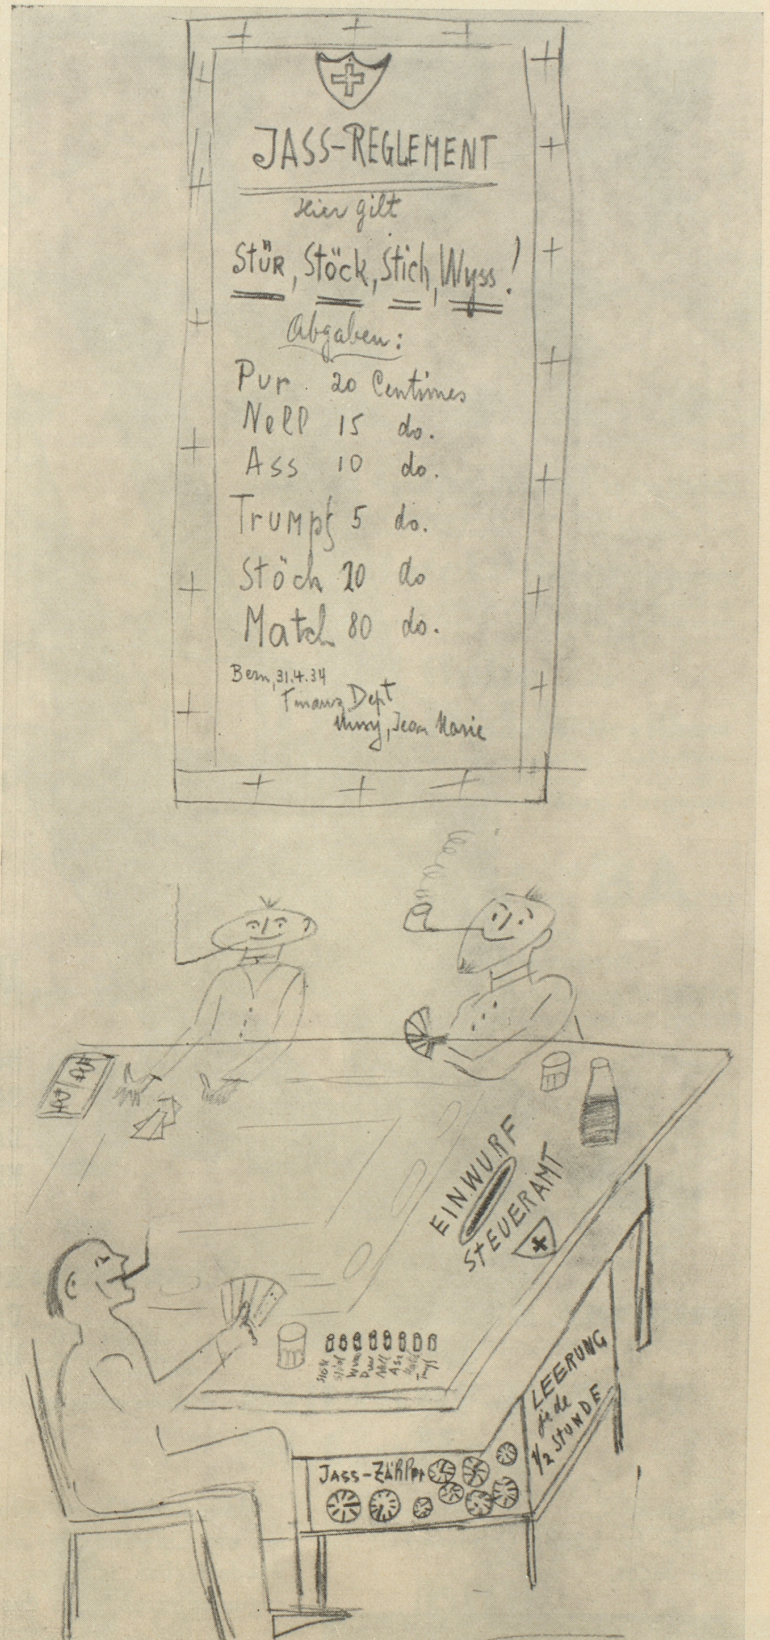 JASS-REGLEMENT
Hier gilt
Stür, Stöck, Stich, Wyss!
Abgaben:
Pur 20 Centimes
Nell 15 do.
Ass 10 do.
Trumpf 5 do.
Stöck 20 do
Match 80 do.
Bern, 31.4.34
Finanz Dept
Musy, Jean Marie
EINWURF
STEUERAMT
Nell
Ass
LEERUNG
jede
1/2 STUNDE
JASS-ZÄHLER